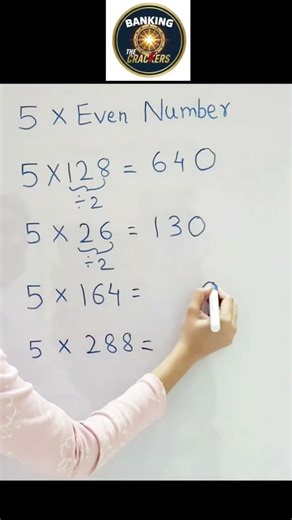 BANKING
THE
CRACKERS
5 × Even Number
5 × 128 = 640
÷2
5 × 26 = 130
÷2
5 × 164 =
5 × 288 =